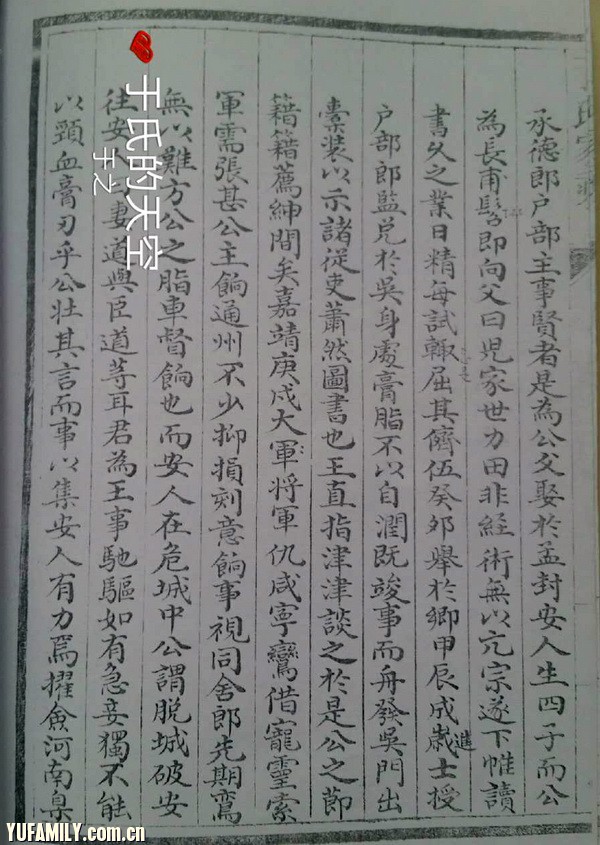 承德郎户部主事賢者是為公父娶於孟封安人生四子而公
為長甫髫即向父曰児家世力田非経術無以亢宗遂下帷讀
書久之業日精每試輙屈其儕伍癸卯舉於鄉甲辰成進士授
户部郎監兌於吳身處膏脂不以自潤既竣事而舟發吳門出
橐装以示諸從吏蕭然圖書也王直指津津談之於是公之節
籍籍薦紳間矣嘉靖庚戌大軍将軍仇咸寧鸞借寵靈索
軍需張甚公主餉通州不少抑損刻意餉事視同舍郎先期鸞
無以難方公之脂車督餉也而安人在危城中公謂脱城破安
往安人妻道與臣道等耳君為王事馳驅如有急妾獨不能
以頸血膏刃乎公壮其言而事以集安人有力焉擢僉河南臬
于氏的天空
于之
YUFAMILY.com.cn